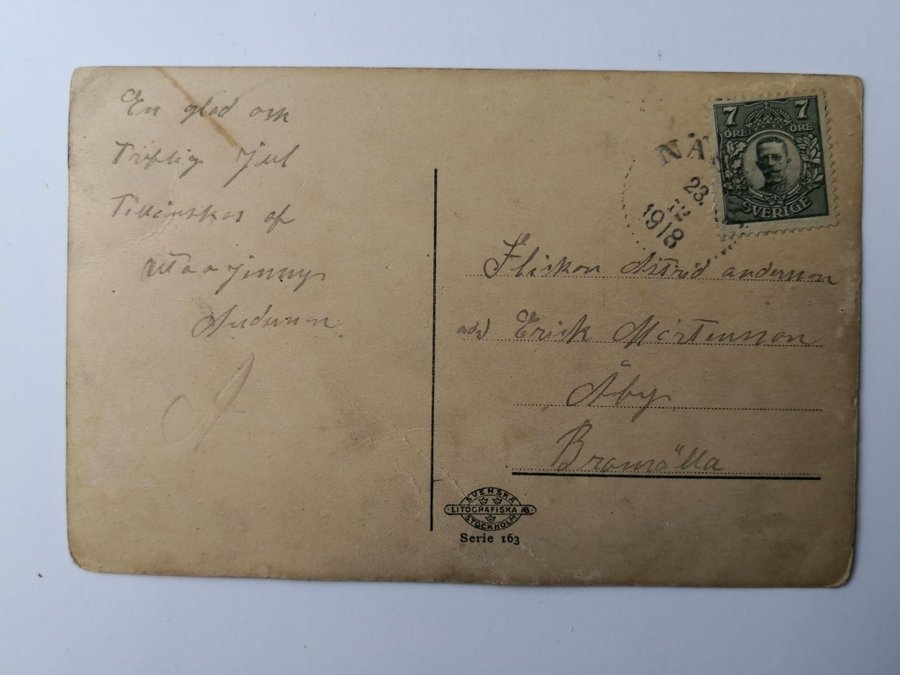 En glad och
Treflig Jul
Tillönskas af
Jenny
Anderson
7 7
ÖRE ÖRE
SVERIGE
NÄ
23.
12
1918
Fliskon Astrid anderson
adr Erick Mårtensson
Åby
Bromölla
SVENSKA
LITOGRAFISKA AB.
STOCKHOLM
Serie 163